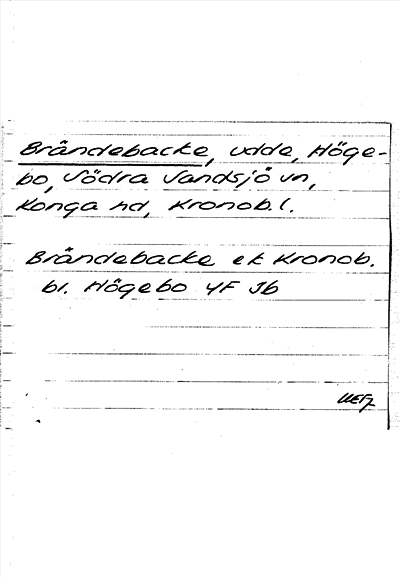 Brändebacke, udde, Höge-
bo, Södra Sandsjö sn,
Konga hd, Kronob. l.
Brändebacke ek Kronob.
bl. Högebo 4F Jb